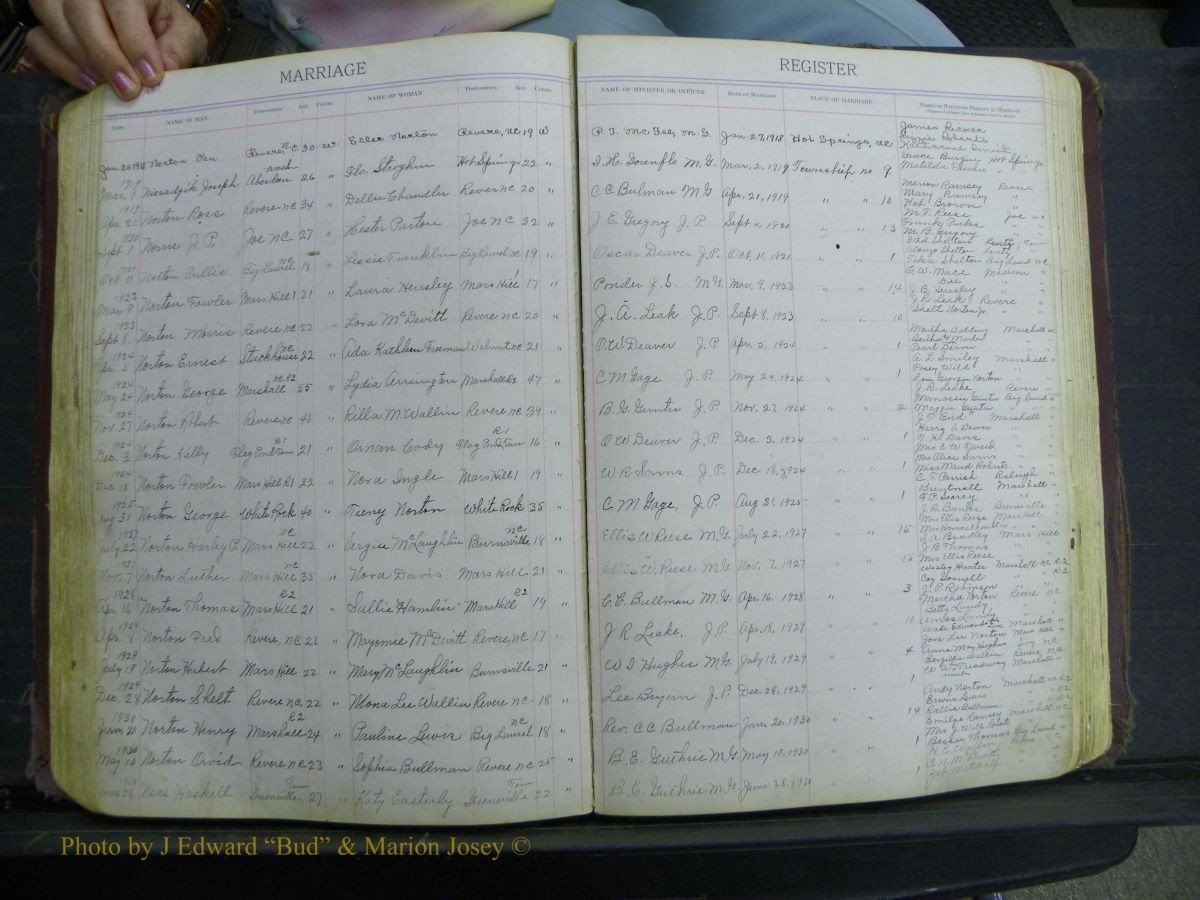 MARRIAGE
DATE NAME OF MAN POST-OFFICE AGE COLOR NAME OF WOMAN POST-OFFICE AGE COLOR
Jan 26 1918 Norton Revere, NC 30 Norton Revere, NC 19 W
1919 Mar. 1 Joseph Aberdeen 26 " Flo. Hot Springs 22 "
1919 Apr. 21 Norton Ross Revere NC 34 " Dellie Chandler Revere NC 20 "
1920 Sept 1 Norris J. P. Joe NC 27 " Hester Joe NC 32 "
1921 Oct 11 Norton Cullis Big Laurel NC 18 " Lessie Franklin Big Laurel NC 19 "
1923 Mar 9 Norton Fowler Mars Hill 1 21 " Laura Hensley Mars Hill 17 "
1923 Sept 8 Norton Morris Revere NC 22 " Lora McDevitt Revere NC 20 "
1924 Apr. 5 Norton Ernest Stackhouse NC 22 " Ada Kathleen Freeman Walnut NC 21 "
1924 May 24 Norton George Marshall NC R2 55 " Lydia Arrington Marshall R2 47 "
1924 Nov. 27 Norton Robert Revere NC 43 " Rilla M. Wallin Revere NC 39 "
1924 Dec. 3 Norton Kelly Flag Pond Tenn R1 21 " Cody Flag Pond Tenn R1 16 "
1924 Dec 18 Norton Fowler Mars Hill R1 22 " Nora Ingle Mars Hill 1 19 "
1925 Aug 31 Norton George White Rock 40 " Teeny Norton White Rock 35 "
1927 July 22 Norton Harley P. Mars Hill NC 22 " Vergie McLaughlin Burnsville NC 18 "
1927 Nov. 7 Norton Luther Mars Hill NC 35 " Nora Davis Mars Hill 21 "
1928 Apr. 16 Norton Thomas Mars Hill R2 21 " Sallie Hamlin Mars Hill R2 19 "
1929 Norton Fred Revere, NC 23 " Mayomie McDevitt Revere, NC 17 "
1929 July 19 Norton Hubert Mars Hill 22 " Mary McLaughlin Burnsville 21 "
1929 Dec. 28 Norton Shelt Revere NC 22 " Mona Lee Wallin Revere NC 18 "
1930 Jan. 20 Norton Henry Marshall R2 24 " Pauline Lewis Big Laurel NC 18 "
1930 May 10 Norton Orvid Revere NC 23 " Sophia Bullman Revere NC 25 "
1930 June 28 Neas Haskell Greeneville Tenn 27 " Katy Easterly Greeneville Tenn 22 "
REGISTER
NAME OF MINISTER OR OFFICER DATE OF MARRIAGE PLACE OF MARRIAGE NAMES OF WITNESSES PRESENT AT MARRIAGE
M. G. Jan. 27, 1918 Hot Springs, NC James
M. G. Mar. 2, 1919 Township no 9 Grace Burgin Hot Springs
Matilda " "
C C Bulman M G Apr. 21, 1919 " " 10 Marion Ramsey Revere
Mary Ramsey "
Brown "
J. E. Gregory J. P. Sept 2, 1920 " " 13 M. T. Reese Joe NC
Frank Parks "
M. B. Gregory "
Oscar Deaver J. P. Oct. 11, 1921 " " 1 Ethel Shelton
Alonzo Shelton
Shelton Big Laurel NC
Ponder J. S. M G Mar. 9, 1923 " " 14 C. W. Mace Madison
J. B. Hensley "
J. A. Leak J. P. Sept 8, 1923 " " 10 J. R. Leak Revere
Shelt Norton Jr. "
O. W Deaver J. P. Apr. 5, 1924 " " 1 Martha Balding Marshall NC
Bertha Martin
Pearl Deaver "
C M Gage J. P. May 24, 1924 " " 1 A. L. Smiley Marshall "
Posey Wild "
B. G. Gunter J. P. Nov. 27, 1924 " " 2 J. R. Leake Revere "
Manassie Gunter Big Laurel "
Maggie Gunter " "
O W Deaver J. P. Dec. 3, 1924 " " 1 J. F. Bird Marshall "
Harry V. Deaver " "
T. H. Davis " "
W R Sams J. P. Dec 18, 1924 " " 1 Mrs C W Tweed " "
Mrs Alice Sams " "
Miss Maud Roberts " "
C M Gage, J. P. Aug 31, 1925 " " 1 C. T. Parish Raleigh "
Brintnall Marshall "
F. P. Searcy " "
Ellis W Reese M. G. July 22, 1927 " " 15 J. R. Banks Burnsville "
Mrs Ellis Reese Mars Hill "
Mrs Chandler " "
Ellis W. Reese M G Nov. 7, 1927 " " 15 Bradley Mars Hill
J. B. Thomas "
Mrs Ellis Reese "
C. C. Bullman M G Apr. 16, 1928 " " 3 Wesley Hunter Marshall NC R2
Coy Gosnell " " R2
J. P. Robinson " "
J R Leake, J. P. Apr. 18, 1927 " " 10 Norton Revere NC
Betty Lundy "
Amos Lundy "
W I Hughes M G July 19, 1929 " " 4 Wade Edwards Marshall "
Zora Lee Norton Mars Hill "
Anna May Hughes Ivy NC
Lee Bryan J. P. Dec 28, 1929 " " 1 Wallin Revere NC
Treadway Marshall "
Rev. C C Bullman Jan. 20, 1930 " " 14 Andy Norton Marshall NC R2
Lewis " " R2
Rallie Bullman " " R2
B. E. Guthrie M. G. May 10, 1930 " " 1 Emilyn Ramsey Marshall NC
Mrs J. Will Roberts "
Bessie Thomas Big Laurel "
B. E. Guthrie M. G. June 28, 1930 " " 1 Wallin
McDevitt "
Job Metcalf "
Photo by J Edward “Bud” & Marion Josey ©